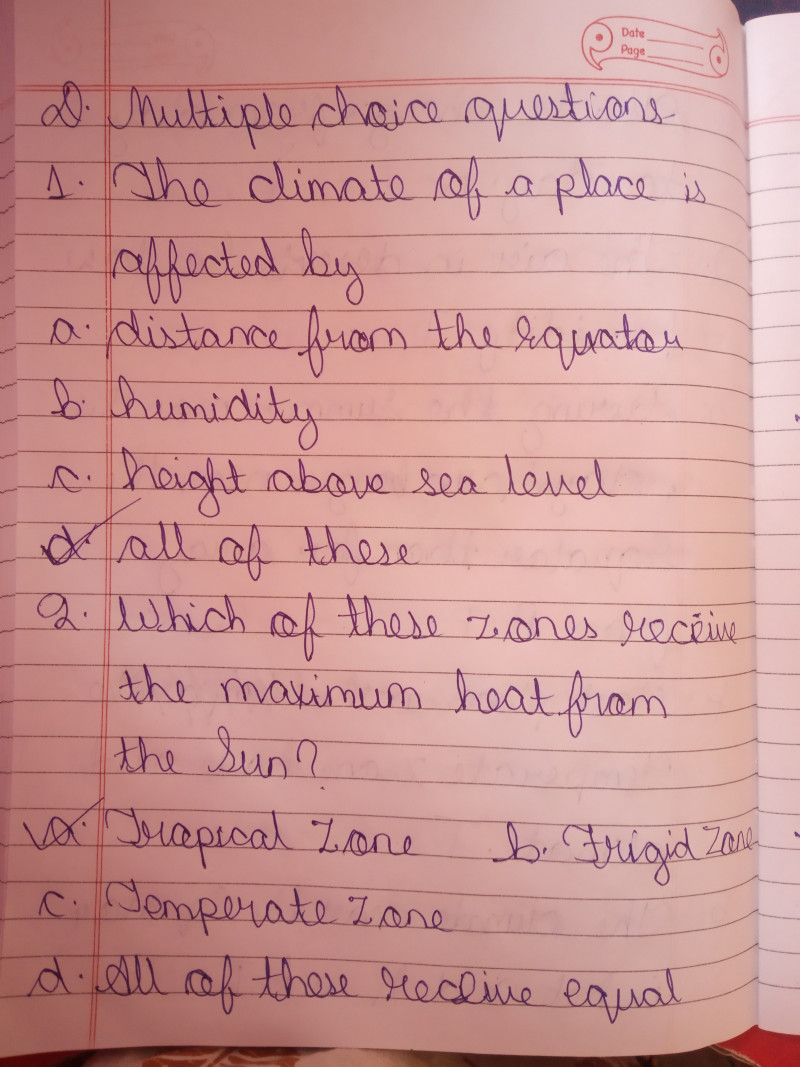 Date
Page
D. Multiple choice questions
1. The climate of a place is
affected by
a. distance from the equator
b. humidity
c. height above sea level
d. all of these
2. Which of these zones receive
the maximum heat from
the Sun?
a. Tropical Zone b. Frigid Zone
c. Temperate Zone
d. All of these receive equal